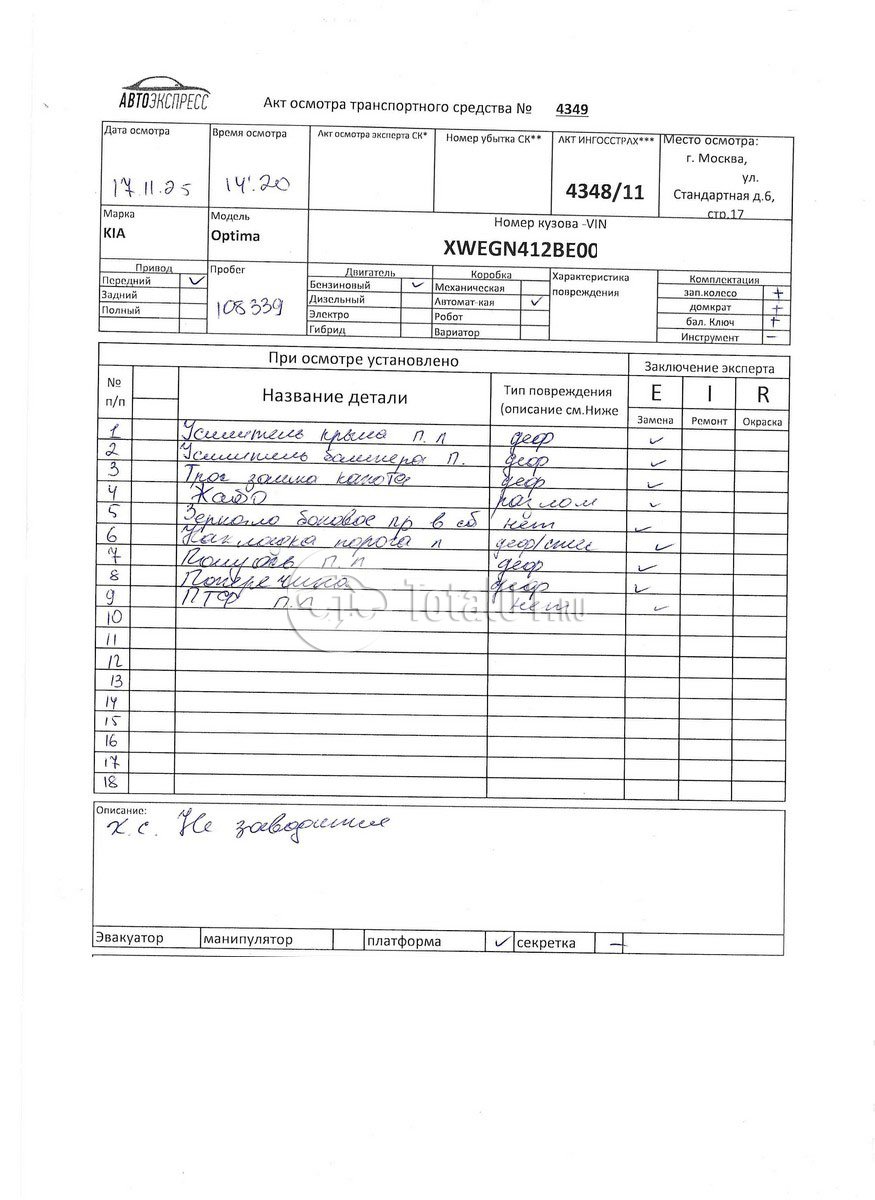 АВТОЭКСПРЕСС
Акт осмотра транспортного средства № 4349
Дата осмотра
17.11.25
Время осмотра
14:20
Акт осмотра эксперта СК*
Номер убытка СК**
АКТ ИНГОССТРАХ***
4348/11
Место осмотра:
г. Москва,
ул.
Стандартная д.6,
стр.17
Марка
KIA
Модель
Optima
Номер кузова -VIN
XWEGN412BE00
Привод
Передний ✓
Задний
Полный
Пробег
108339
Двигатель
Бензиновый ✓
Дизельный
Электро
Гибрид
Коробка
Механическая
Автомат-кая ✓
Робот
Вариатор
Характеристика
повреждения
Комплектация
зап.колесо +
домкрат +
бал. Ключ +
Инструмент –
При осмотре установлено
Заключение эксперта
№
п/п
Название детали
Тип повреждения
(описание см.Ниже
E I R
Замена Ремонт Окраска
1 Усилитель крыла п.л деф ✓
2 Усилитель бампера П. деф ✓
3 Трос замка капота деф ✓
4 Жабо разлом ✓
5 Зеркало боковое пр в сб нет ✓
6 Накладка порога л ✓
7 п.л деф ✓
8 Поперечина деф ✓
9 ПТФ п.л нет ✓
10
11
12
13
14
15
16
17
18
Total01.RU
Описание:
х.с. Не заводится
Эвакуатор манипулятор платформа ✓ секретка –